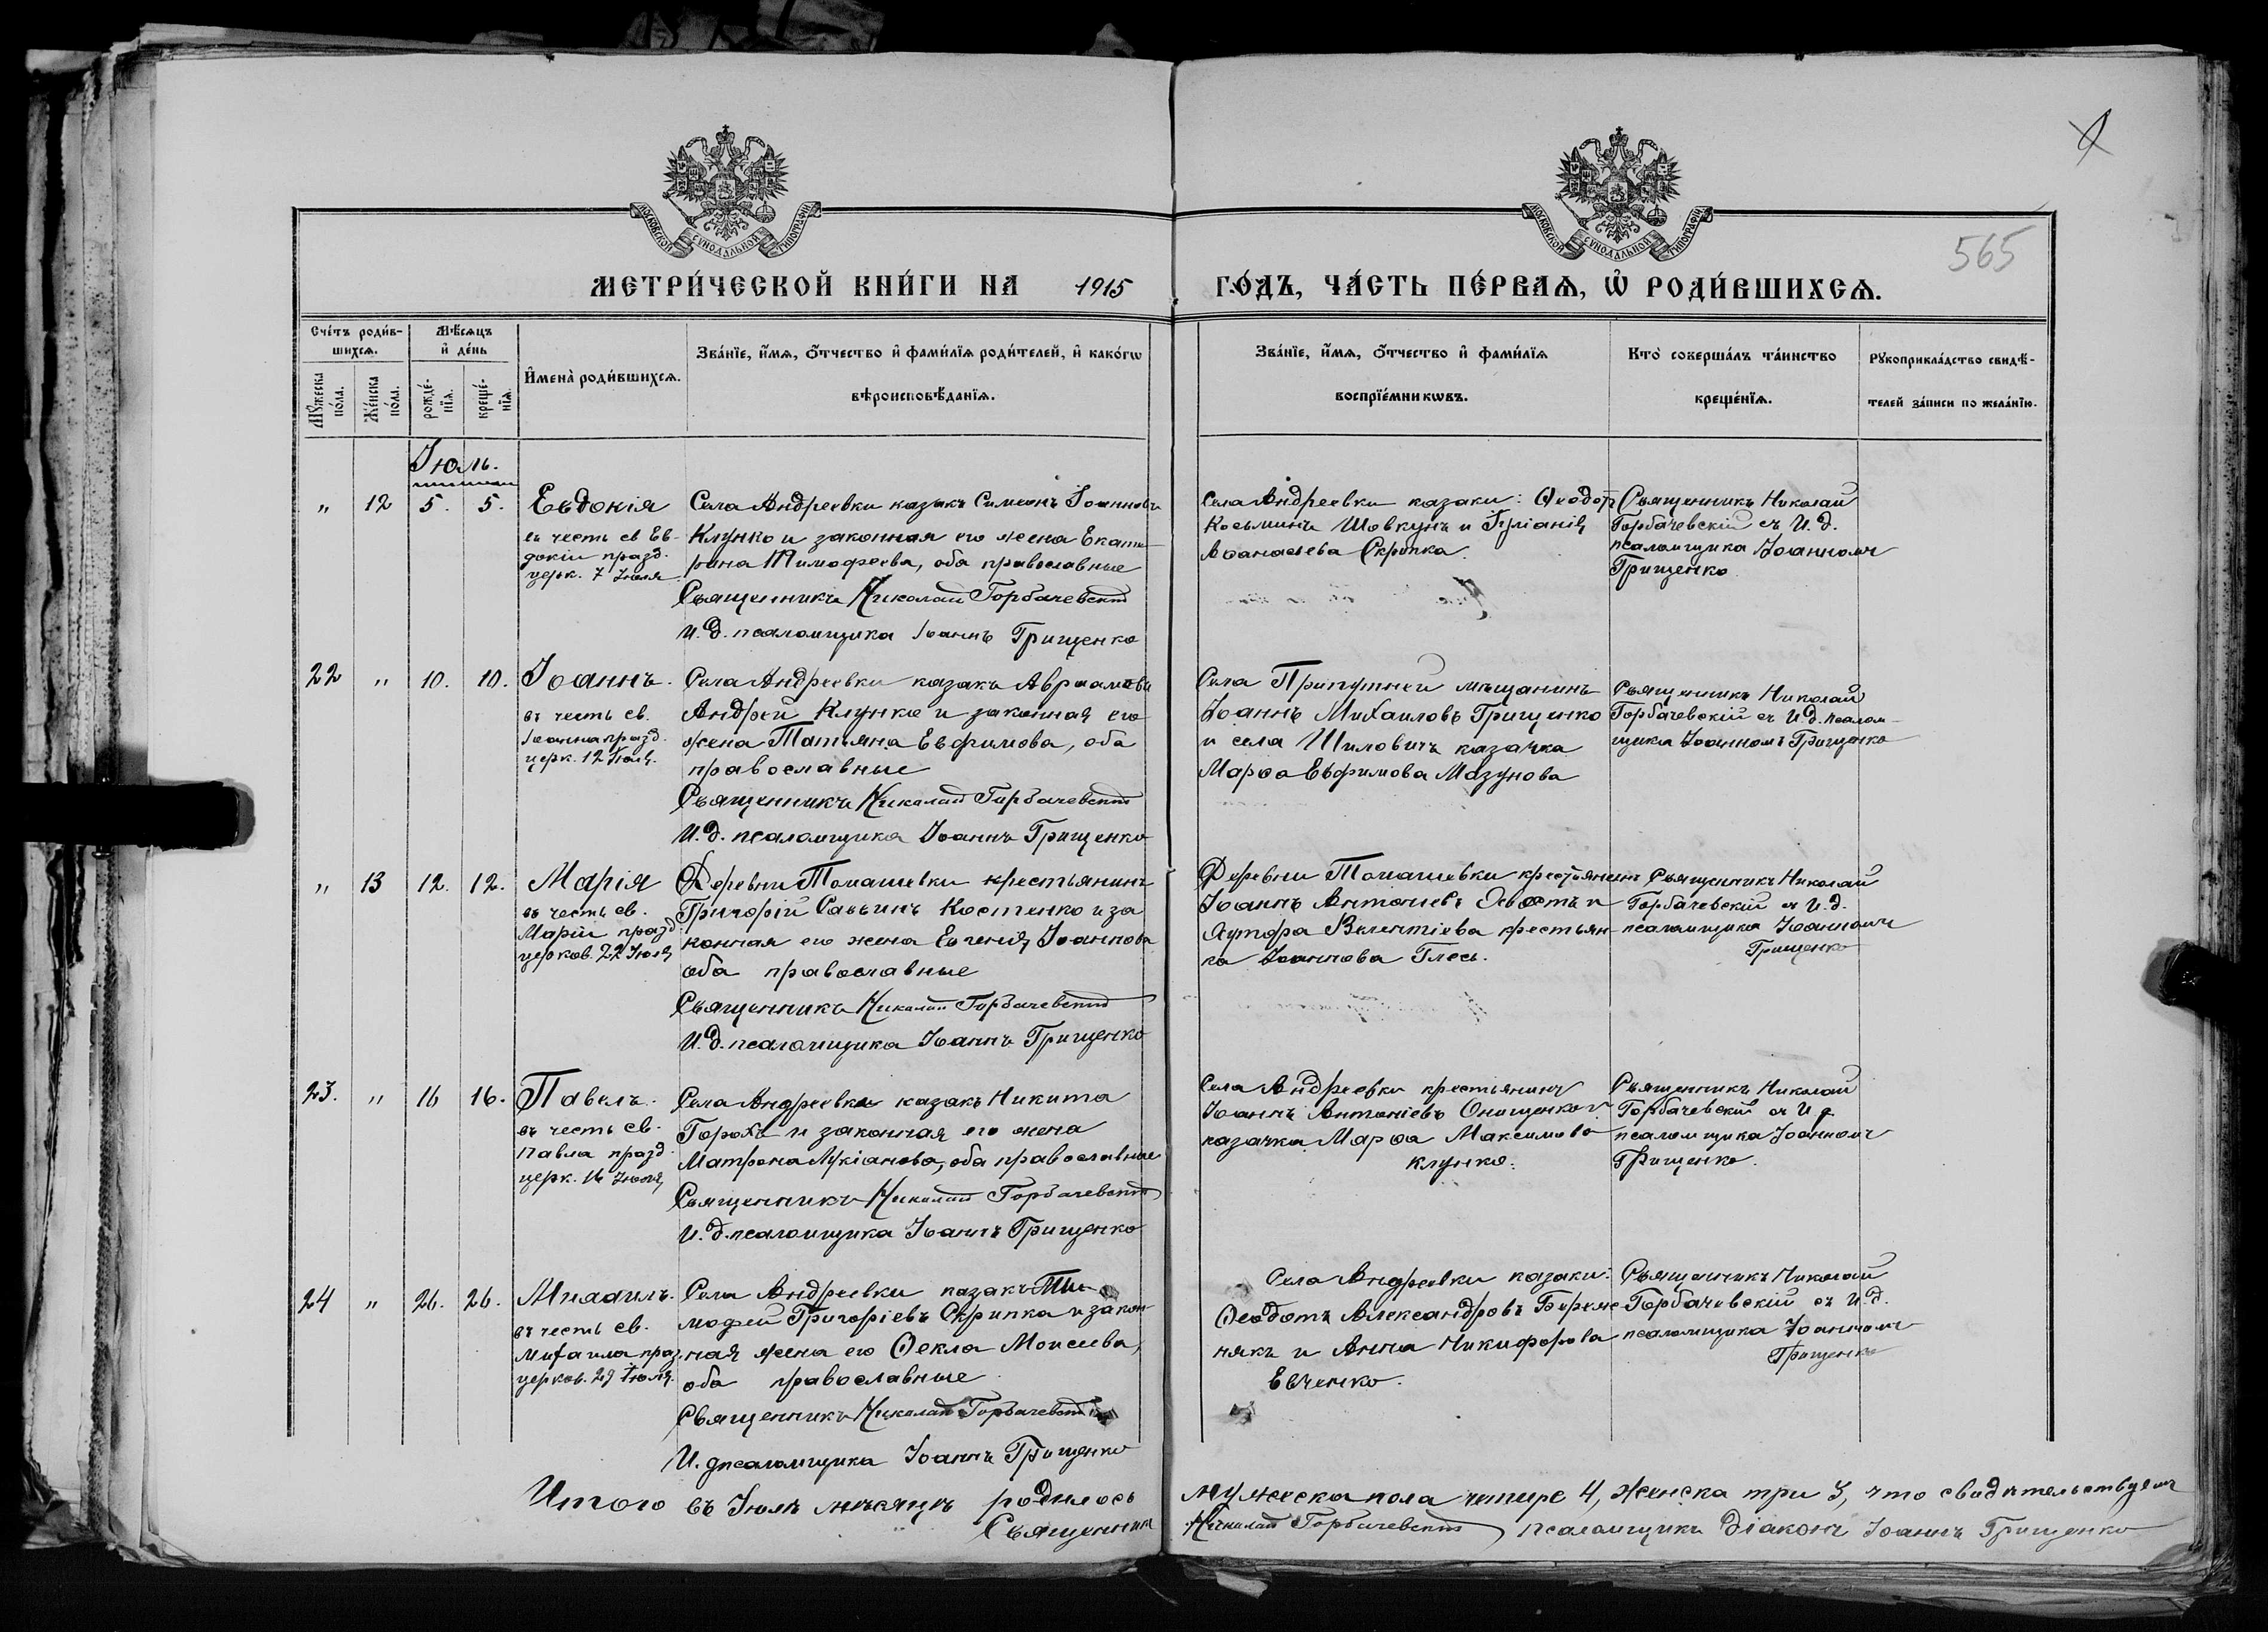 МОСКОВСКОЙ СѴНОДАЛЬНОЙ ТИПОГРАФІИ
МОСКОВСКОЙ СѴНОДАЛЬНОЙ ТИПОГРАФІИ
565
МЕТРИ́ЧЕСКОЙ КНИ́ГИ НА 1915 ГО́ДЪ, ЧА́СТЬ ПЕ́РВАѦ, Ѡ҆ РОДИ́ВШИХСѦ.
Сче́тъ роди́в-
шихсѧ.
Мѣ́сѧцъ
и҆ де́нь
Мꙋ́жеска
по́ла.
Же́нска
по́ла.
рожде́-
нїѧ.
креще́-
нїѧ.
И҆мена̀ роди́вшихсѧ.
Зва́нїе, и҆́мѧ, ѻ҆́тчество и҆ фами́лїѧ роди́телей, и҆ како́гѡ
вѣроисповѣ́данїѧ.
Зва́нїе, и҆́мѧ, ѻ҆́тчество и҆ фами́лїѧ
воспрїе́мникѡвъ.
Кто̀ соверша́лъ та́инство
креще́нїѧ.
Рꙋкоприкла́дство свидѣ́-
телей за́писи по жела́нїю.
Іюль.
" 12 5. 5. Евдокія
въ честь св Ев-
докіи празд.
церк. 7 Іюля
Села Андреевки казакъ Симеонъ Іоанновъ
Клунко и законная его жена Екате-
рина Тимофеева, оба православные
Священникъ Николай Горбачевскій
И.д. псаломщика Іоаннъ Грищенко
Села Андреевки казаки: Ѳеодотъ
Косьминъ Шовкунъ и Іуліанія
Аѳанасьева Скрипка
Священникъ Николай
Горбачевскій съ И.д.
псаломщика Іоанномъ
Грищенко
22 " 10. 10. Іоаннъ.
въ честь св.
Іоанна празд.
церк. 12 Іюля.
Села Андреевки казакъ Авраамовъ
Андрей Клунко и законная его
жена Татьяна Евфимова, оба
православные
Священникъ Николай Горбачевскій
И.д. псаломщика Іоаннъ Грищенко
Села Припутней мѣщанинъ
Іоаннъ Михаиловъ Грищенко
и села Шиловичъ казачка
Марѳа Евфимова Мазунова
Священникъ Николай
Горбачевскій съ И.д. псалом-
щика Іоанномъ Грищенко
" 13 12. 12. Марія
въ честь св.
Маріи празд
церков. 22 Іюля
Деревни Томашевки крестьянинъ
Григорій Савинъ Костенко и за
конная его жена Евгенія Іоаннова
оба православные
Священникъ Николай Горбачевскій
И.д. псаломщика Іоаннъ Грищенко
Деревни Томашевки крестьянинъ
Іоаннъ Антоніевъ и
крестьян
ка Іоаннова Глесь.
Священникъ Николай
Горбачевскій съ И.д.
псаломщика Іоанномъ
Грищенко
23. " 16 16. Павелъ.
въ честь св.
Павла празд.
церк. 16 Іюля
Села Андреевки казакъ Никита
Горохъ и законная его жена
Матрона Лукіанова, оба православные
Священникъ Николай Горбачевскій
И.д. псаломщика Іоаннъ Грищенко
Села Андреевки крестьянинъ
Іоаннъ Антоніевъ Онищенко и
казачка Марѳа Максимова
Клунко.
Священникъ Николай
Горбачевскій съ И д
псаломщика Іоанномъ
Грищенко.
24 " 26. 26. Михаилъ.
въ честь св.
Михаила праз.
церков. 29 Іюля.
Села Андреевки казакъ Ти-
мофей Григоріевъ Скрипка и закон
ная жена его Ѳекла Моисеева,
оба православные
Священникъ Николай Горбачевскій
И. д псаломщика Іоаннъ Грищенко
Села Андреевки казаки:
Ѳеодотъ Александровъ Бережс
някъ и Анна Никифорова
Евченко.
Священникъ Николай
Горбачевскій съ И.д.
псаломщика Іоанномъ
Грищенко
Итого въ Іюлѣ мѣсяцѣ родилось мужеска пола четыре 4, женска три 3, что свидѣтельствуемъ
Священникъ Николай Горбачевскій псаломщикъ діаконъ Іоаннъ Грищенко